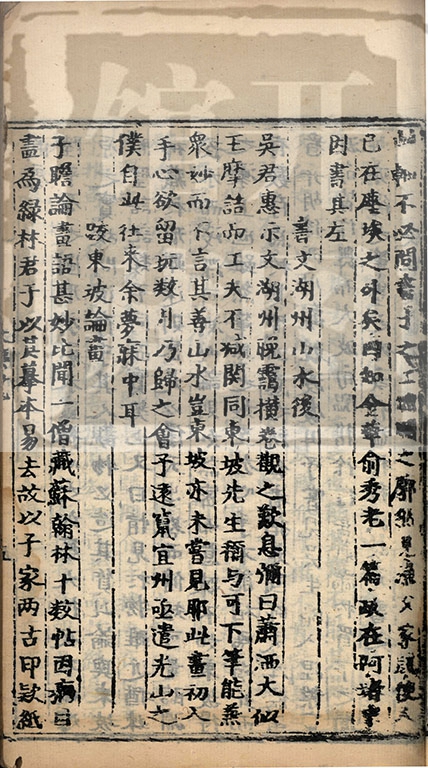 此軸不必問書手之工拙之廓然見漁父家風使人
已在塵埃之外矣因知金華俞秀老一篇政在阿堵中
因書其左
書文湖州山水後
吳君惠示文湖州晚靄橫卷觀之歎息彌日蕭洒大似
王摩詰而工夫不減関同東坡先生稱与可下筆能兼
衆妙而不言其善山水豈東坡亦未嘗見耶此畫初入
手心欲留玩数月乃歸之會予遠竄宜州亟遣光山之
僕自此往來余夢寐中耳
跋東坡論畫
子瞻論畫語甚妙比聞一僧藏蘇翰林十數帖因病目
盡為綠林君子以其摹本易去故以予家两古印款紙